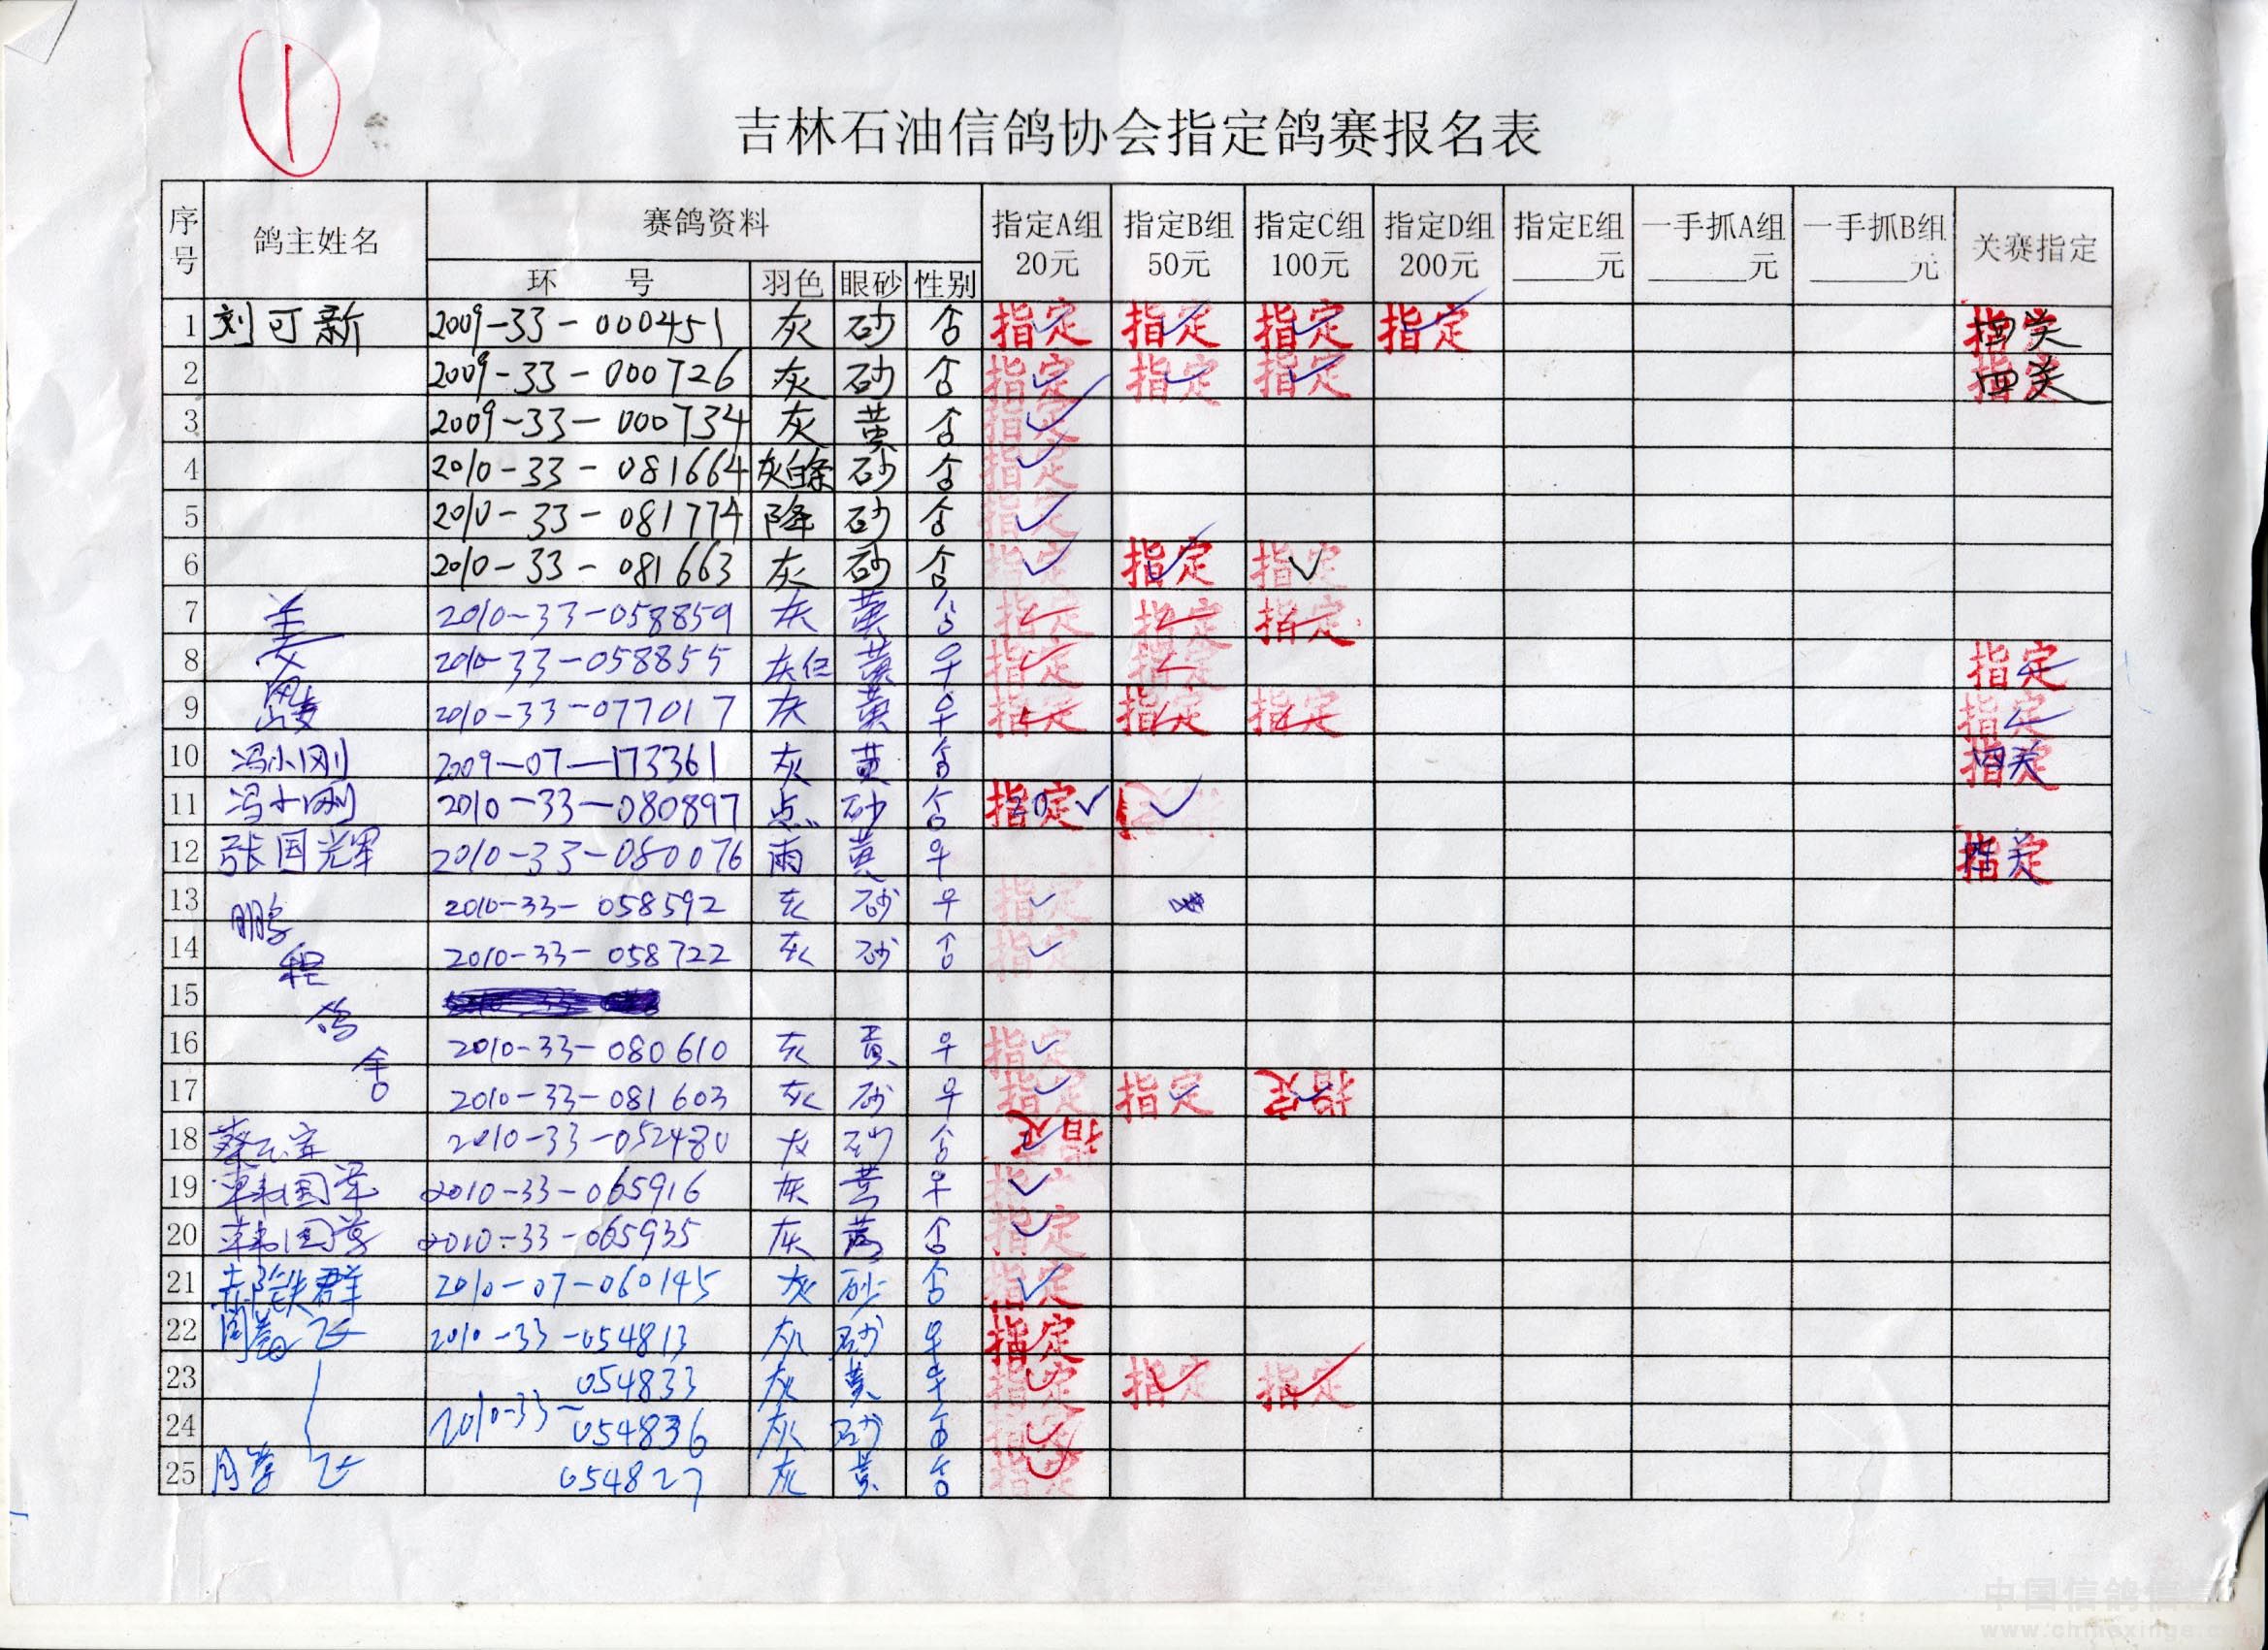 1
吉林石油信鸽协会指定鸽赛报名表
序号 鸽主姓名 赛鸽资料 指定A组 20元 指定B组 50元 指定C组 100元 指定D组 200元 指定E组 元 一手抓A组 元 一手抓B组 元 关赛指定
环 号 羽色 眼砂 性别
1 刘可新 2009-33-000451 灰 砂 指定 指定 指定 指定 指定 四关
2 2009-33-000726 灰 砂 指定 指定 指定 指定 四关
3 2009-33-000734 灰 黄 指定
4 2010-33-081664 灰白条 砂 指定
5 2010-33-081774 降 砂 指定
6 2010-33-081663 灰 砂 指定 指定 指定
7 2010-33-058859 灰 黄 指定 指定 指定
8 2010-33-058855 黄 指定 指定 指定
9 2010-33-077017 灰 黄 指定 指定 指定 指定
10 冯小刚 2009-07-173361 灰 黄 指定 四关
11 冯小刚 2010-33-080897 点 砂 指定 20
12 张国辉 2010-33-080076 雨 黄 指定 四关
13 鹏 2010-33-058592 灰 砂 指定
14 程 2010-33-058722 灰 砂 指定
15 鸽
16 舍 2010-33-080610 灰 黄 指定
17 2010-33-081603 灰 砂 指定 指定 指定
18 2010-33-052480 灰 砂 指定
19 韩国军 2010-33-065916 灰 黄 指定
20 韩国军 2010-33-065935 灰 黄 指定
21 郝铁群 2010-07-060145 灰 砂 指定
22 2010-33-054813 灰 砂 指定
23 054833 灰 黄 指定 指定 指定
24 2010-33-054836 灰 砂 指定
25 054827 灰 黄 指定
中国信鸽信息
www.chinaxinge.com